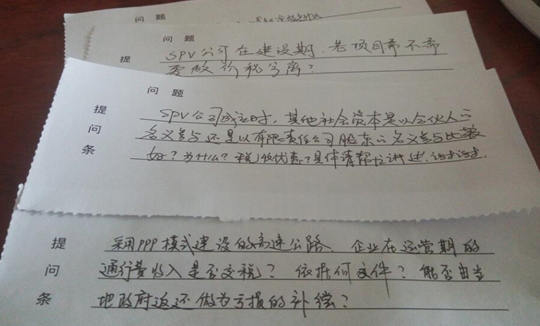 问题
提 SPV公司在建设期,老项目需不需
要做价税分离?
问题
提 SPV公司成立时,其他社会资本是以合伙人的
问 名义参与还是以有限责任公司股东的名义参与比较
条 好?为什么?税收优惠?具体请帮忙讲述,谢谢
提 采用PPP模式建设的高速公路 企业在运营期的
问 通行费收入是否交税?依据何文件?能否由当
条 地政府返还做为亏损的补偿?